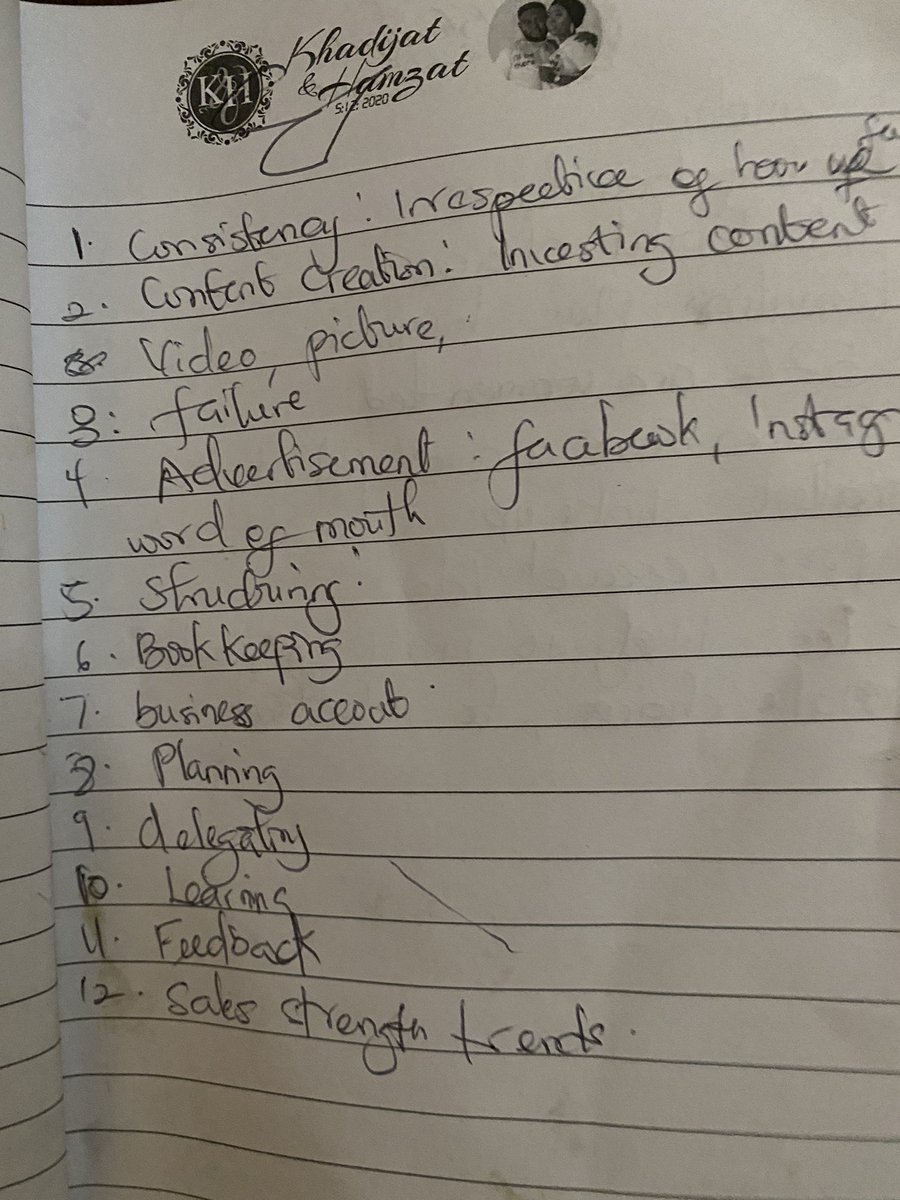 KH
Khadijat
& Hamzat
5:12:2020
1. Consistency: Irrespective of how
2. Content Creation: Investing content
Video, picture,
3: failure
4. Advertisement: facebook, Instag
word of mouth
5. Structuring.
6. Book keeping
7. business accout
8. Planning
9. delegating
10. Learing
11. Feedback
12. Sales strength trends.